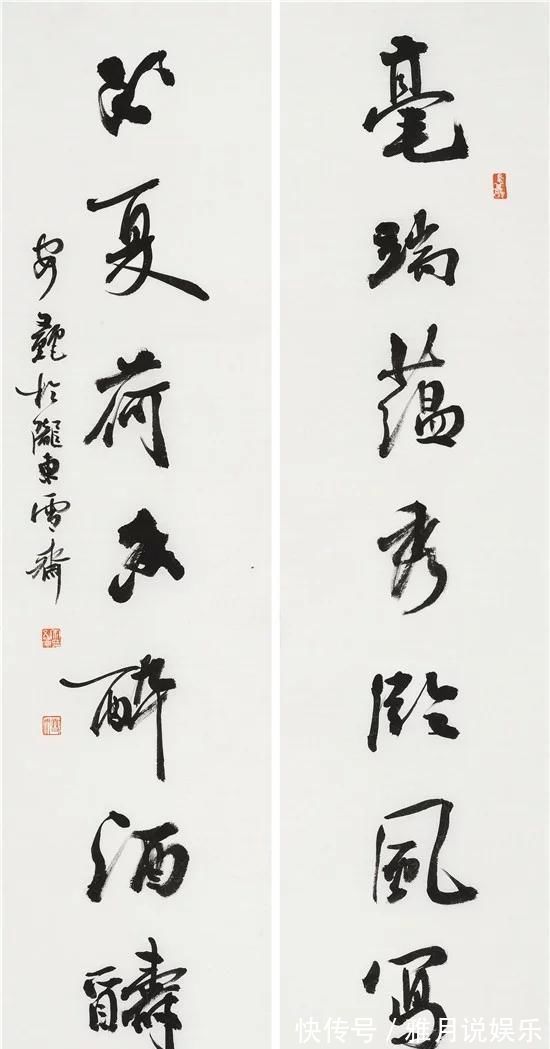 毫端蘊秀臨風寫
夏荷醉酒醻
於隴東雪齋
快传号/雅月说娱乐